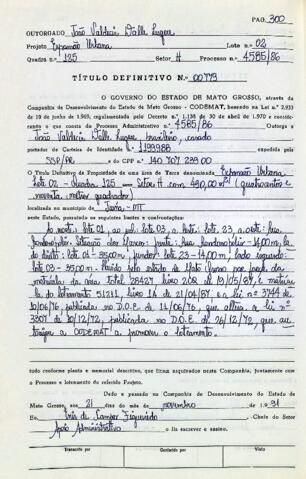 PAG. 300
OUTORGADO João Valdecir Dalle Luque
Projeto Expansão Urbana Lote n.º 02
Quadra n.º 125 Setor H Processo n.º 4585/86
TÍTULO DEFINITIVO N.º 00773
O GOVERNO DO ESTADO DE MATO GROSSO, através da
Companhia de Desenvolvimento do Estado de Mato Grosso - CODEMAT, baseado na Lei n.º 2.933
de 10 de junho de 1969, regulamentado pelo Decreto n.º 1.138 de 30 de abril de 1970 e considerando
o que consta do Processo Administrativo n.º 4585/86 Outorga a
João Valdecir Dalle Luque brasileiro, casado
portador da Carteira de Identidade n.º 1199988 expedida
SSP/PR e do CPF n.º 140 707 239 00
o Título Definitivo de Propriedade de uma área de Terra denominada Expansão Urbana
Lote 02 - Quadra 125 - Setor H com 490,00 m² (quatrocentos e
noventa metros quadrados)
localizada no município de MT
neste Estado, passando os seguintes limites e confrontações:
ao norte: lote 01, ao sul: lote 03, a leste: lote 23, a oeste: Rua
frente: Rua 14,00 m, la
do direito: lote 01 - 35,00 m, fundos: lote 23 - 14,00 m, lado esquerdo:
lote 03 - 35,00 m pelo Estado de Mato Grosso
matrícula da área total 28427 livro 208 de 19/05/87, e matrícu
la do loteamento 51211, livro 1A de 21/04/87 e a Lei n.º 3744 de
10/06/76, publicada no D.O.E. de 11/06/76, que altera a Lei n.º
3307 de 18/12/72, publicada no D.O.E. de 26/12/72, que au
toriza a CODEMAT a promover o loteamento.
tudo conforme planta e memorial descritivo, que ficam arquivados nesta Companhia, juntamente com
o Processo e loteamento do referido Projeto.
Dado e passado na Companhia de Desenvolvimento do Estado de
Mato Grosso, aos 21 dias do mês de novembro de 1991
Eu Inês de Campos Figueiredo Chefe do Setor
Apoio Administrativo o fiz escrever e assino.
Transcrito por Conferido por Visto